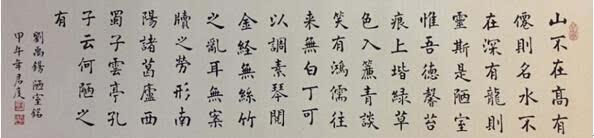 山不在高有
僊則名水不
在深有龍則
靈斯是陋室
惟吾德馨苔
痕上堦綠草
色入簾青談
笑有鴻儒往
来無白丁可
以調素琴閱
金經無絲竹
之亂耳無案
牘之勞形南
陽諸葛廬西
蜀子雲亭孔
子云何陋之
有
劉禹錫 陋室銘
甲午年君